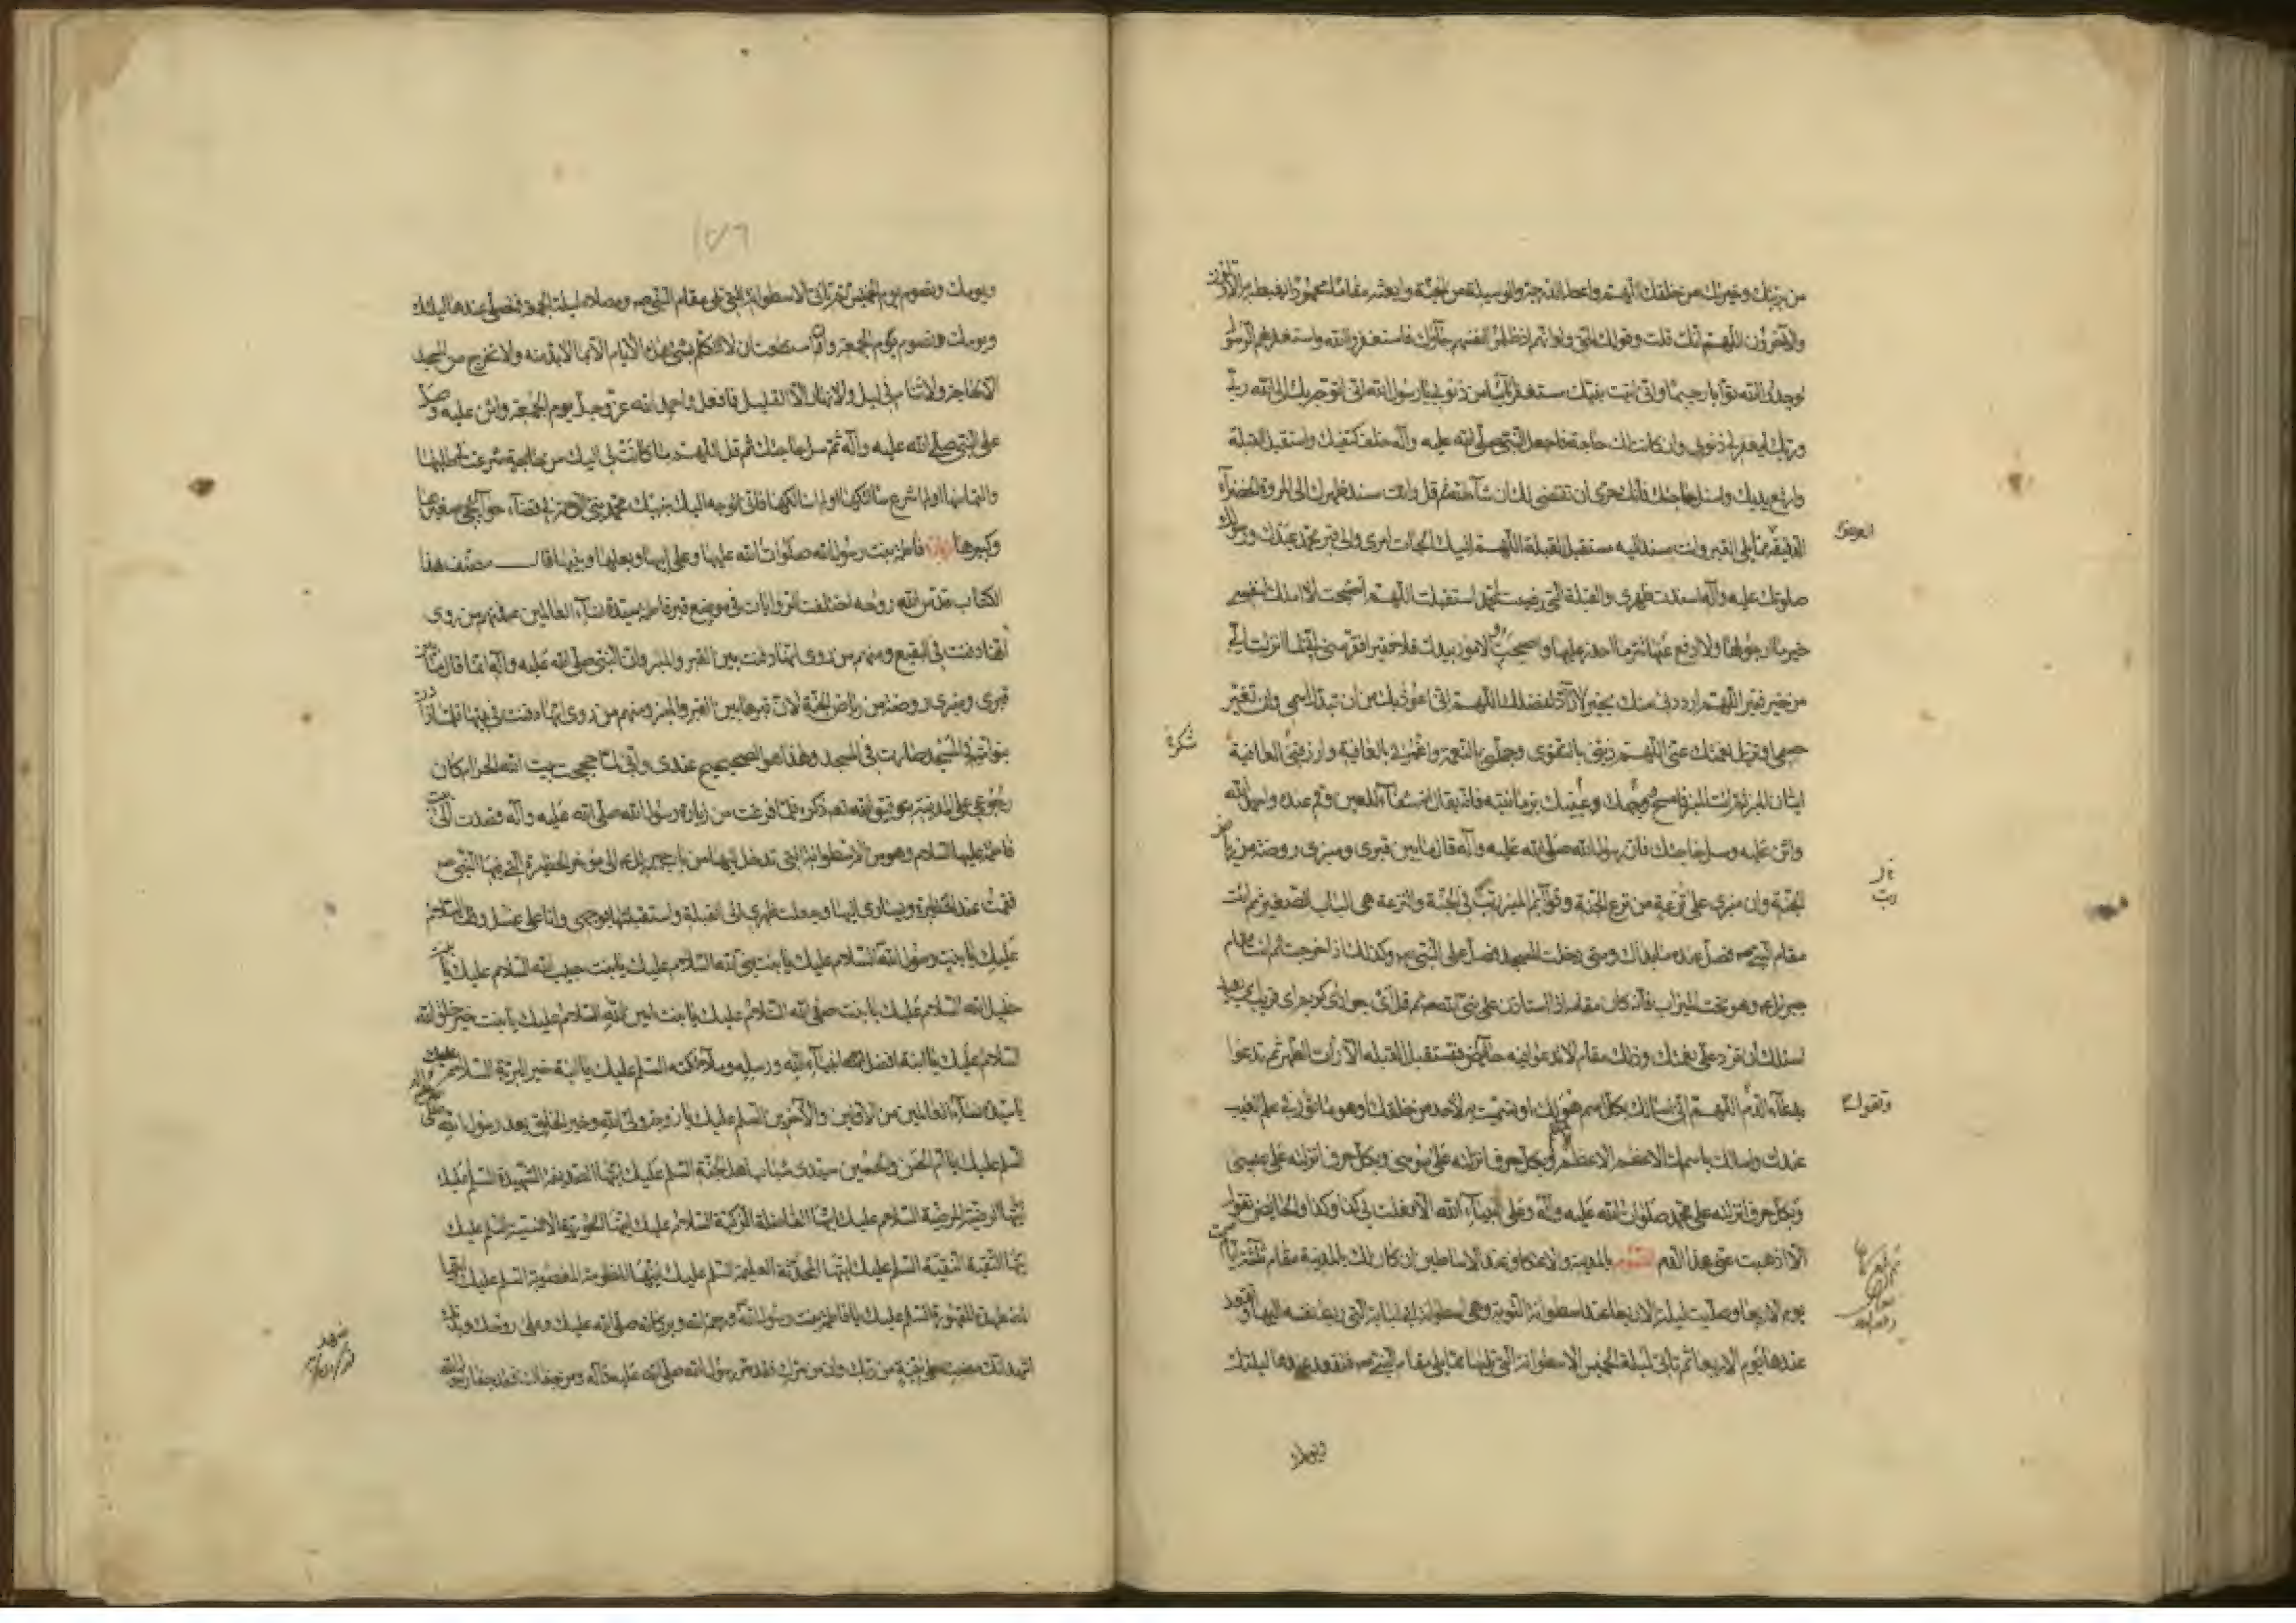 من بريتك وخيرتك من خلقك اللهم واعطه الدرجة والوسيلة من الجنة وابعثه مقاما محمودا يغبطه به الأولون
والآخرون اللهم انك قلت وقولك الحق ولو انهم اذ ظلموا انفسهم جاؤك فاستغفروا الله واستغفر لهم الرسول
لوجدوا الله توابا رحيما واني اتيت نبيك مستغفرا تائبا من ذنوبي يا رسول الله اني اتوجه بك الى الله ربي
وربك ليغفر لي ذنوبي وان كانت لك حاجة فاجعل النبي صلى الله عليه وآله خلف كتفيك واستقبل القبلة
وارفع يديك واسئل حاجتك فانك حرى ان تقضى لك ان شاء الله ثم قل وانت مسند ظهرك الى المروة الخضراء
الدقيقة مما يلي القبر وانت مسند اليه مستقبل القبلة اللهم اليك الجات امرى والى قبر محمد عبدك ورسولك
صلوتك عليه وآله اسندت ظهري والقبلة التي رضيت لمحمد استقبلت اللهم اصبحت لا املك لنفسي
خير ما ارجو لها ولا ادفع عنها شر ما احذر عليها واصبحت الامور بيدك فلا فقير افقر مني اني لما انزلت الي
من خير فقير اللهم ارددني منك بخير لا راد لفضلك اللهم اني اعوذ بك من ان تبدل اسمي وان تغير
جسمي وتزيل نعمتك عني اللهم زيني بالتقوى وجملني بالنعم واغمرني بالعافية وارزقني العافية
شكرة
اتيان المنبر ثم ائت المنبر فامسح وجهك وعينيك برمانتيه فانه يقال انه شفاء للعين وقم عنده واحمد الله
واثن عليه وسل حاجتك فان رسول الله صلى الله عليه وآله قال ما بين قبري ومنبري روضة من رياض
الجنة وان منبري على ترعة من ترع الجنة وقوائم المنبر رتب في الجنة والترعة هي الباب الصغير ثم ائت
مقام النبي ص فصل عنده ما بدا لك ومتى دخلت المسجد فصل على النبي ص وكذلك اذا خرجت ثم ائت مقام
جبرئيل وهو تحت الميزاب فانه كان مقامه اذا استاذن على نبي الله ص ثم قل اى جواد اى كريم اى قريب اى بعيد
اسئلك ان ترد علي نعمتك وذلك مقام لا تدعو فيه حائض فتستقبل القبلة الا رأت الطهر ثم تدعوا
بدعاء الدم اللهم اني اسالك بكل اسم هو لك او تسميت به لأحد من خلقك او هو مأثور في علم الغيب
عندك واسالك باسمك الاعظم الاعظم الاعظم وبكل حرف انزلته على موسى وبكل حرف انزلته على عيسى
وبكل حرف انزلته على محمد صلوات الله عليه وآله وعلى انبياء الله الا فعلت بي كذا وكذا والحائض تقول
الا اذهبت عني هذا الدم الصوم بالمدينة والاعتكاف عند الاساطين ان كان لك بالمدينة مقام ثلثة ايام صمت
يوم الاربعا وصليت ليلة الاربعا عند اسطوانة التوبة وهي اسطوانة ابي لبابة التي ربط نفسه اليها وتقعد
عندها يوم الاربعا ثم تاتي ليلة الخميس الاسطوانة التي تليها مما يلي مقام النبي ص فتقعد عندها ليلتك
ويومك
ويومك وتصوم يوم الخميس ثم تاتي الاسطوانة التي تلي مقام النبي ص ومصلاه ليلة الجمعة فتصلي عندها ليلتك
ويومك وتصوم يوم الجمعة وان استطعت ان لا تتكلم بشيء هذه الايام الا بما لا بد منه ولا تخرج من المسجد
الا لحاجة ولا تنام في ليل ولا نهار الا القليل فافعل واحمد الله عز وجل يوم الجمعة واثن عليه وصل
على النبي صلى الله عليه وآله ثم سل حاجتك ثم قل اللهم ما كانت لي اليك من حاجة شرعت في طلبها
والتماسها او لم اشرع سالتكها او لم اسالكها فاني اتوجه اليك بنبيك محمد نبي الرحمة في قضاء حوائجي صغيرها
وكبيرها زيارة فاطمة بنت رسول الله صلوات الله عليها وعلى ابيها وبعلها وبنيها قال مصنف هذا
الكتاب قدس الله روحه اختلفت الروايات في موضع قبر فاطمة سيدة نساء العالمين فمنهم من روى
انها دفنت في البقيع ومنهم من روى انها دفنت بين القبر والمنبر وان النبي صلى الله عليه وآله انما قال ما بين
قبري ومنبري روضة من رياض الجنة لان قبرها بين القبر والمنبر ومنهم من روى انها دفنت في بيتها فلما زادت
بنو امية في المسجد صارت في المسجد وهذا هو الصحيح عندى واني لما حججت بيت الله الحرام كان
رجوعي على المدينة بتوفيق الله تع ذكره فلما فرغت من زيارة رسول الله صلى الله عليه وآله قصدت الى بيت
فاطمة عليها السلام وهو من الاسطوانة التي تدخل اليها من باب جبرئيل الى مؤخر الحظيرة التي فيها النبي ص
فقمت عند الحظيرة ويساري اليها وجعلت ظهري الى القبلة واستقبلتها بوجهي وانا على غسل وقلت السلام
عليك يا بنت رسول الله السلام عليك يا بنت نبي الله السلام عليك يا بنت حبيب الله السلام عليك يا بنت
خليل الله السلام عليك يا بنت صفي الله السلام عليك يا بنت امين الله السلام عليك يا بنت خير خلق الله
السلام عليك يا ابنة افضل انبياء الله ورسله وملائكته السلم عليك يا ابنة خير البرية السلام عليك
يا سيدة نساء العالمين من الاولين والآخرين السلم عليك يا زوجة ولى الله وخير الخلق بعد رسول الله
السلم عليك يا ام الحسن والحسين سيدى شباب اهل الجنة السلم عليك ايتها الصديقة الشهيدة السلم عليك
ايتها الرضية المرضية السلام عليك ايتها الفاضلة الزكية السلام عليك ايتها الحورية الانسية السلم عليك
ايتها التقية النقية السلم عليك ايتها المحدثة العليمة السلم عليك ايتها المظلومة المغصوبة السلم عليك ايتها
المضطهدة المقهورة السلم عليك يا فاطمة بنت رسول الله ورحمة الله وبركاته صلى الله عليك وعلى روحك وبدنك
اشهد انك مضيت على بينة من ربك وان من سرك فقد سر رسول الله صلى الله عليه وآله ومن جفاك فقد جفا رسول الله